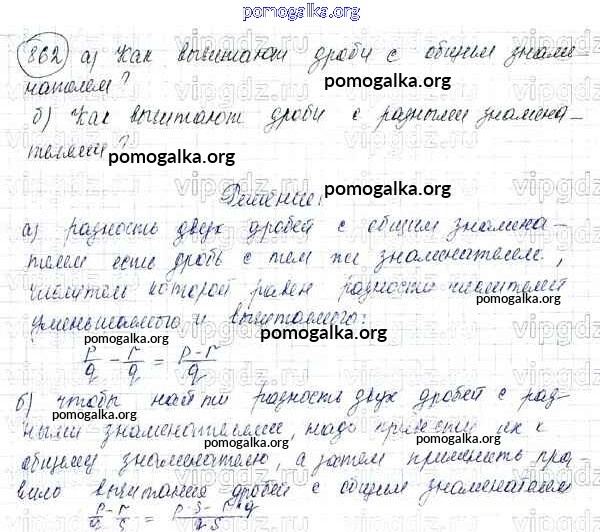 pomogalka.org
862 а) Как вычитают дроби с общим знаме-
нателем?
pomogalka.org
б) Как вычитают дроби с разными знамена-
телями?
pomogalka.org
Решение:
а) разность двух дробей с общим знамена-
телем есть дробь с тем же знаменателем,
числитель которой равен разности числителей
уменьшаемого и вычитаемого:
p/q - r/q = p-r/q
б) чтобы найти разность двух дробей с раз-
ными знаменателями, надо привести их к
общему знаменателю, а затем применить пра-
вило вычитания дробей с общим знаменателем
pomogalka.org